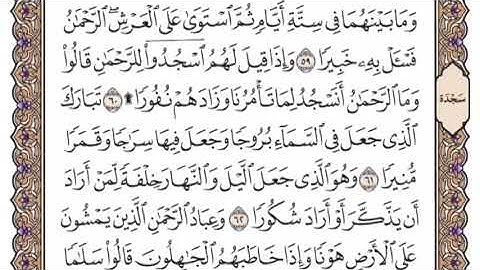 وَمَا بَيْنَهُمَا فِي سِتَّةِ أَيَّامٍ ثُمَّ ٱسْتَوَىٰ عَلَى ٱلْعَرْشِۚ ٱلرَّحْمَٰنُ
فَسْـَٔلْ بِهِۦ خَبِيرًا ٥٩ وَإِذَا قِيلَ لَهُمُ ٱسْجُدُوا۟ لِلرَّحْمَٰنِ قَالُوا۟
وَمَا ٱلرَّحْمَٰنُ أَنَسْجُدُ لِمَا تَأْمُرُنَا وَزَادَهُمْ نُفُورًا ۩ ٦٠ تَبَارَكَ
ٱلَّذِي جَعَلَ فِي ٱلسَّمَآءِ بُرُوجًا وَجَعَلَ فِيهَا سِرَٰجًا وَقَمَرًا
مُّنِيرًا ٦١ وَهُوَ ٱلَّذِي جَعَلَ ٱلَّيْلَ وَٱلنَّهَارَ خِلْفَةً لِّمَنْ أَرَادَ
أَن يَذَّكَّرَ أَوْ أَرَادَ شُكُورًا ٦٢ وَعِبَادُ ٱلرَّحْمَٰنِ ٱلَّذِينَ يَمْشُونَ
عَلَى ٱلْأَرْضِ هَوْنًا وَإِذَا خَاطَبَهُمُ ٱلْجَٰهِلُونَ قَالُوا۟ سَلَٰمًا
سَجْدَة